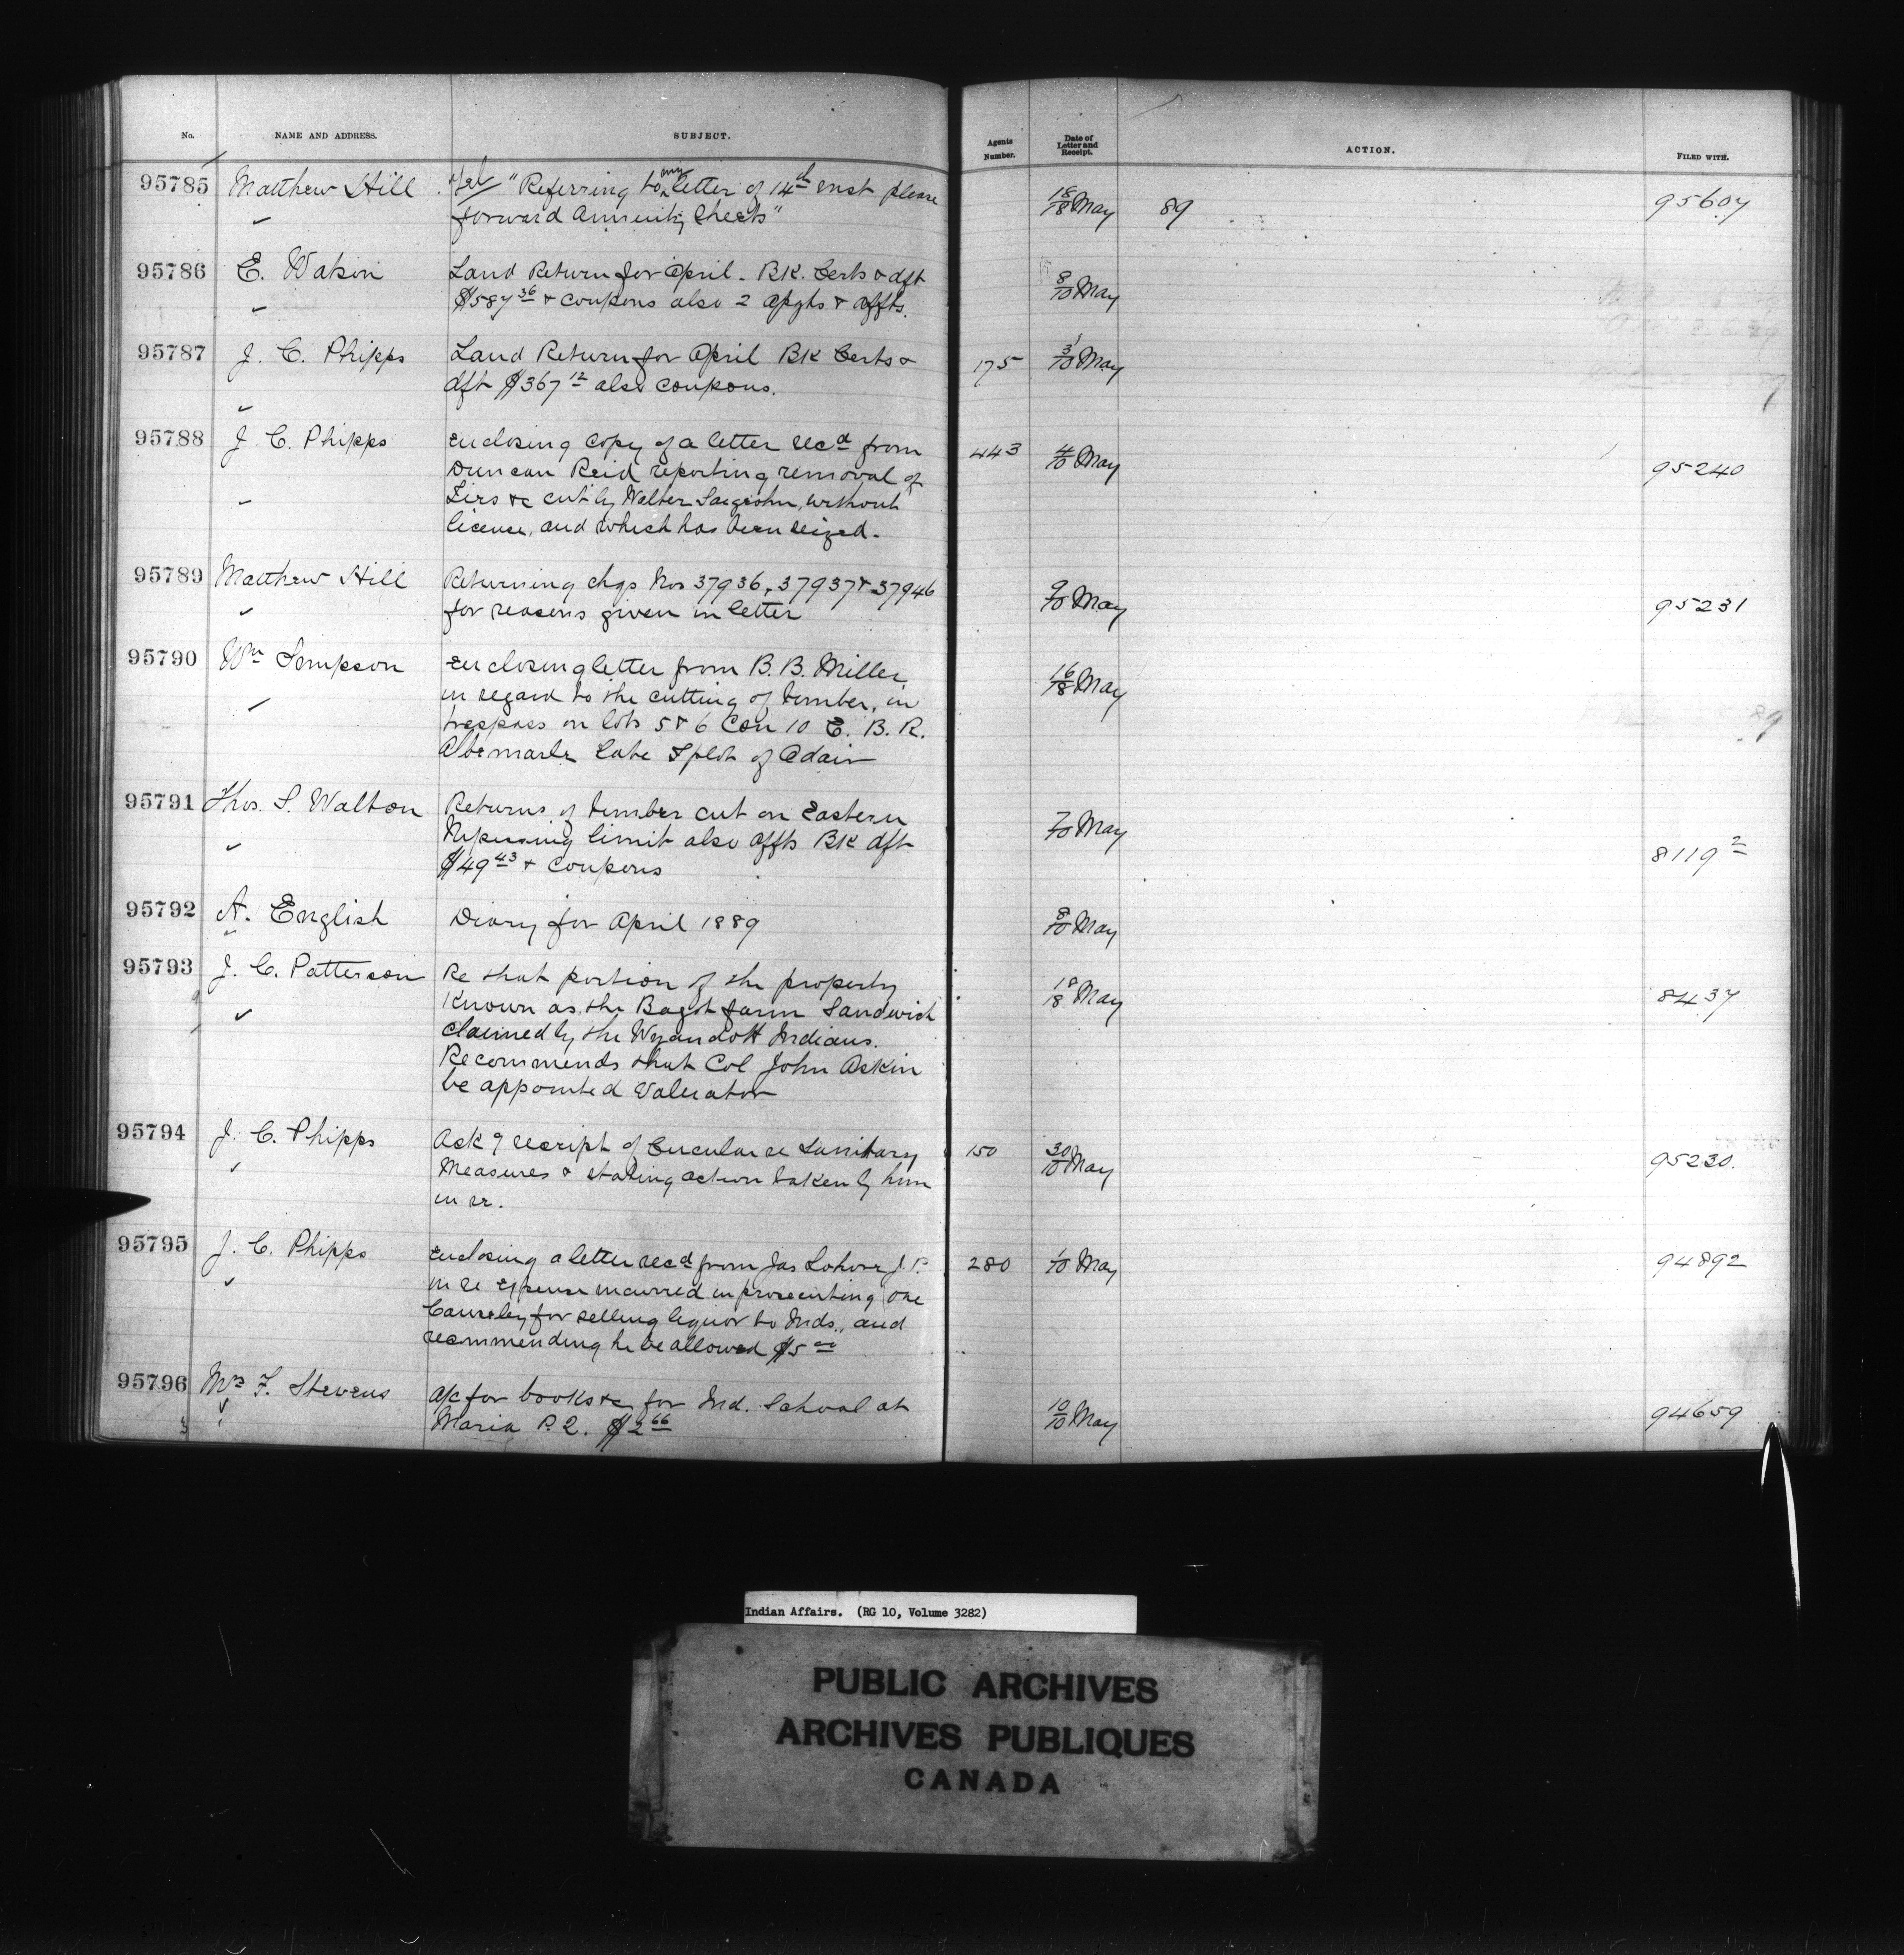 No. NAME AND ADDRESS. SUBJECT. Agents Number. Date of Letter and Receipt. ACTION. FILED WITH.
95785 Matthew Hill Tel "Referring to my letter of 14th inst please 18/18 May 89 95607
forward Annuity Checks"
95786 E. Watson Land Return for April - BK. Certs & dft 8/10 May
$587 36 & coupons also 2 apghs & affts.
95787 J. C. Phipps Land Return for April BK Certs & 175 3/10 May
dft $367 12 also coupons.
95788 J. C. Phipps Enclosing Copy of a letter recd from 443 4/10 May 95240
Duncan Reid reporting removal of
Ties &c cut by Walter without
license, and which has been seized.
95789 Matthew Hill Returning chqs Nos 37936, 37937 & 37946 9/10 May 95231
for reasons given in letter
95790 Wm Simpson Enclosing letter from B. B. Miller 16/18 May
in regard to the cutting of timber, in
trespass on lots 5 & 6 Con 10 E. B. R.
Albemarle late of Adair
95791 Thos. S. Walton Returns of timber cut on Eastern 7/10 May 8119 2
Nipissing limit also affts BK dft
$49 43 & coupons
95792 A. English Diary for April 1889 8/10 May
95793 J. C. Patterson Re that portion of the property 18/18 May 8437
Known as the Bagot farm Sandwich
claimed by the Wyandott Indians.
Recommends that Col John Askin
be appointed Valuator
95794 J. C. Phipps Ack g receipt of Circular re Sanitary 150 30/10 May 95230.
Measures & stating action taken by him
in re.
95795 J. C. Phipps Enclosing a letter recd from Jas J. P. 280 1/10 May 94892
in re expense incurred in prosecuting one
for selling liquor to Inds., and
recommending he be allowed $5 00
95796 Mrs F. Stevens a/c for books &c for Ind. School at 10/10 May 94659
Maria P. Q. $2 66
Indian Affairs. (RG 10, Volume 3282)
PUBLIC ARCHIVES
ARCHIVES PUBLIQUES
CANADA